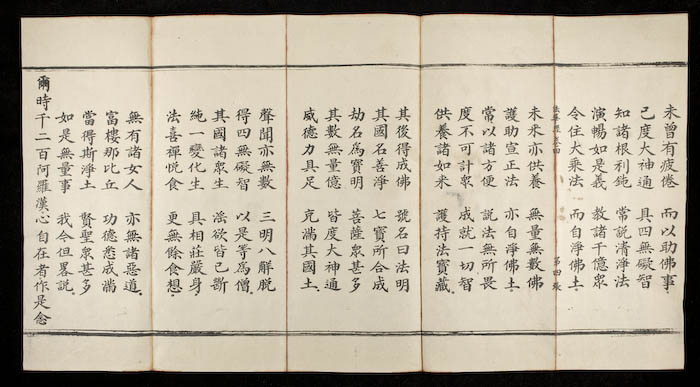 未曾有疲倦　而以助佛事
已度大神通　具四無礙智
知諸根利鈍　常說清淨法
演暢如是義　教諸千億眾
令住大乘法　而自淨佛土
法華經卷四　第四張
未來亦供養　無量無數佛
護助宣正法　亦自淨佛土
常以諸方便　說法無所畏
度不可計眾　成就一切智
供養諸如來　護持法寶藏
其後得成佛　號名曰法明
其國名善淨　七寶所合成
劫名為寶明　菩薩眾甚多
其數無量億　皆度大神通
威德力具足　充滿其國土
聲聞亦無數　三明八解脫
得四無礙智　以是等為僧
其國諸眾生　婬欲皆已斷
純一變化生　具相莊嚴身
法喜禪悅食　更無餘食想
無有諸女人　亦無諸惡道
富樓那比丘　功德悉成滿
當得斯淨土　賢聖眾甚多
如是無量事　我今但畧說
爾時千二百阿羅漢心自在者作是念